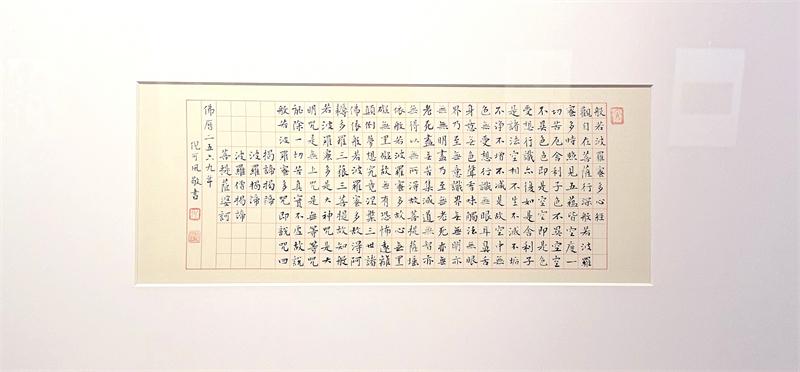 般若波羅蜜多心經
觀自在菩薩行深般若波羅
蜜多時照見五蘊皆空度一
切苦厄舍利子色不異空空
不異色色即是空空即是色
受想行識亦復如是舍利子
是諸法空相不生不滅不垢
不淨不增不減是故空中無
色無受想行識無眼耳鼻舌
身意無色聲香味觸法無眼
界乃至無意識界無無明亦
無無明盡乃至無老死亦無
老死盡無苦集滅道無智亦
無得以無所得故菩提薩埵
依般若波羅蜜多故心無罣
礙無罣礙故無有恐怖遠離
顛倒夢想究竟涅槃三世諸
佛依般若波羅蜜多故得阿
耨多羅三藐三菩提故知般
若波羅蜜多是大神咒是大
明咒是無上咒是無等等咒
能除一切苦真實不虛故說
般若波羅蜜多咒即說咒曰
揭諦揭諦
波羅揭諦
波羅僧揭諦
菩提薩婆訶
佛曆二五六九年
倪可風敬書